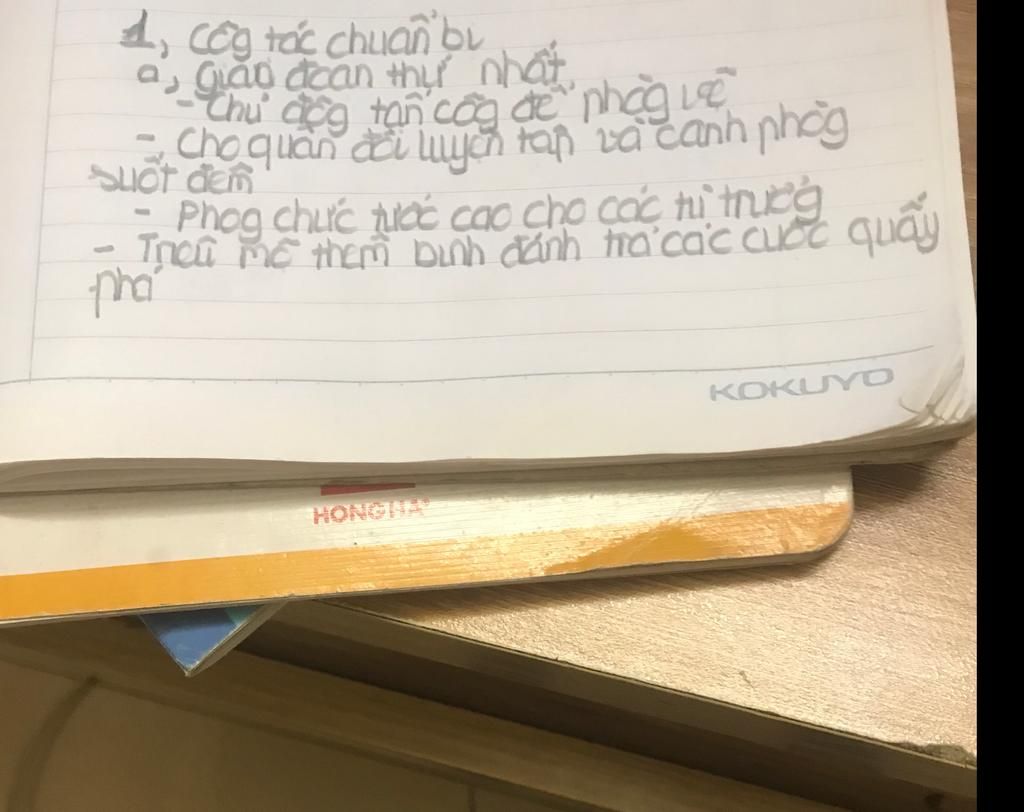 1, Côg tác chuẩn bị
a, giao đoan thứ nhất
- Chủ độg tấn côg để phòg vệ
- Cho quân đội luyện tập và canh phòg
suốt đêm
- Phog chức tước cao cho các tù trưởg
- Trcũ mộ thêm binh đánh trả các cuộc quấy
phá
KOKUYO
HONG HA